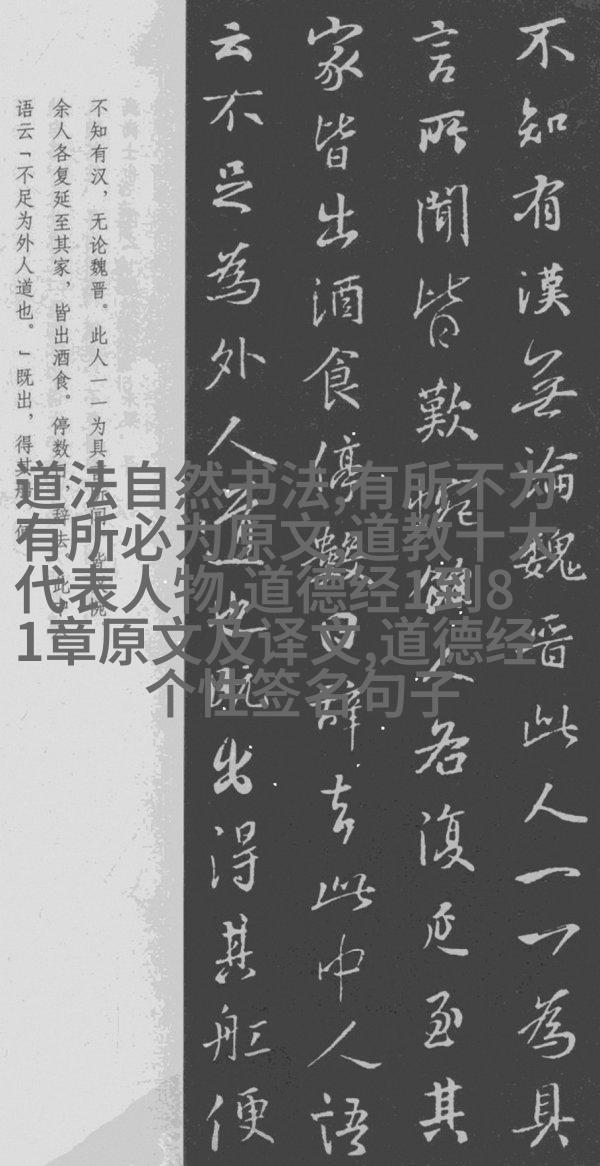 不知有漢無論魏晋此人一一為具
言所聞皆歎惋餘人各復延至其
家皆出酒食停數日辭去此中人語
云不足為外人道也既出得其舡便
不知有汉，无论魏晋。此人一一为具
余人各复延至其家，皆出酒食。停数日，辞去。此中
语云「不足为外人道也。」既出，得其
道法自然书法,有所不为
有所必为原文,道教十大
代表人物,道德经1到8
1章原文及译文,道德经
个性签名句子